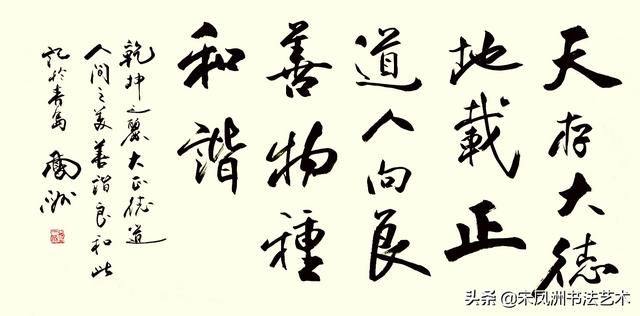 天存大德
地載正
道人向良
善物種
和諧
乾坤之麗大正德道
人间之美善諧良和此
記於青島 鳳洲
头条 @宋凤洲书法艺术